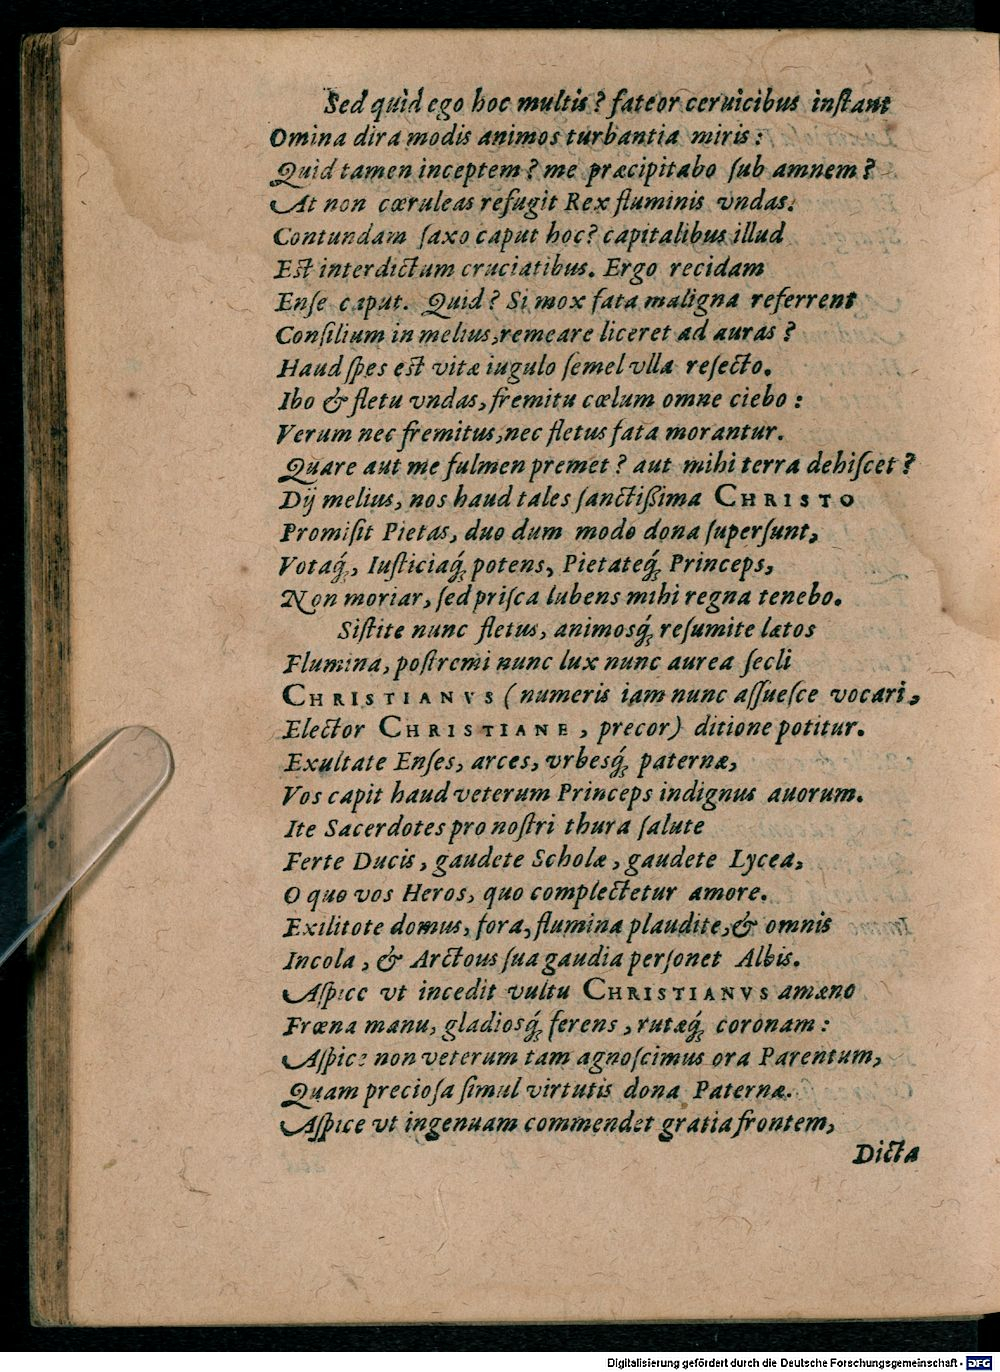 Sed quid ego hoc multis? fateor ceruicibus inſtant
Omina dira modis animos turbantia miris:
Quid tamen inceptem? me præcipitabo ſub amnem?
At non cœruleas refugit Rex fluminis vndas.
Contundam ſaxo caput hoc? capitalibus illud
Eſt interdictum cruciatibus. Ergo recidam
Enſe caput. Quid? Si mox fata maligna referrent
Conſilium in melius, remeare liceret ad auras?
Haud ſpes eſt vitæ iugulo ſemel vlla reſecto.
Ibo & fletu vndas, fremitu cœlum omne ciebo:
Verum nec fremitus, nec fletus fata morantur.
Quare aut me fulmen premet? aut mihi terra dehiſcet?
Dij melius, nos haud tales ſanctißima CHRISTO
Promiſit Pietas, duo dum modo dona ſuperſunt,
Votaq́;, Iuſticiaq́; potens, Pietateq́; Princeps,
Non moriar, ſed priſca lubens mihi regna tenebo.
Siſtite nunc fletus, animosq́; reſumite lætos
Flumina, poſtremi nunc lux nunc aurea ſecli
CHRISTIANVS (numeris iam nunc aſſueſce vocari,
Elector CHRISTIANE, precor) ditione potitur.
Exultate Enſes, arces, vrbesq́; paternæ,
Vos capit haud veterum Princeps indignus auorum.
Ite Sacerdotes pro noſtri thura ſalute
Ferte Ducis, gaudete Scholæ, gaudete Lycea,
O quo vos Heros, quo complectetur amore.
Exilitote domus, fora, flumina plaudite, & omnis
Incola, & Arctous ſua gaudia perſonet Albis.
Aſpice vt incedit vultu CHRISTIANVS amæno
Fræna manu, gladiosq́; ferens, rutæq́; coronam:
Aſpice non veterum tam agnoſcimus ora Parentum,
Quam precioſa ſimul virtutis dona Paternæ.
Aſpice vt ingenuam commendet gratia frontem,
Dicta
Digitalisierung gefördert durch die Deutsche Forschungsgemeinschaft - DFG